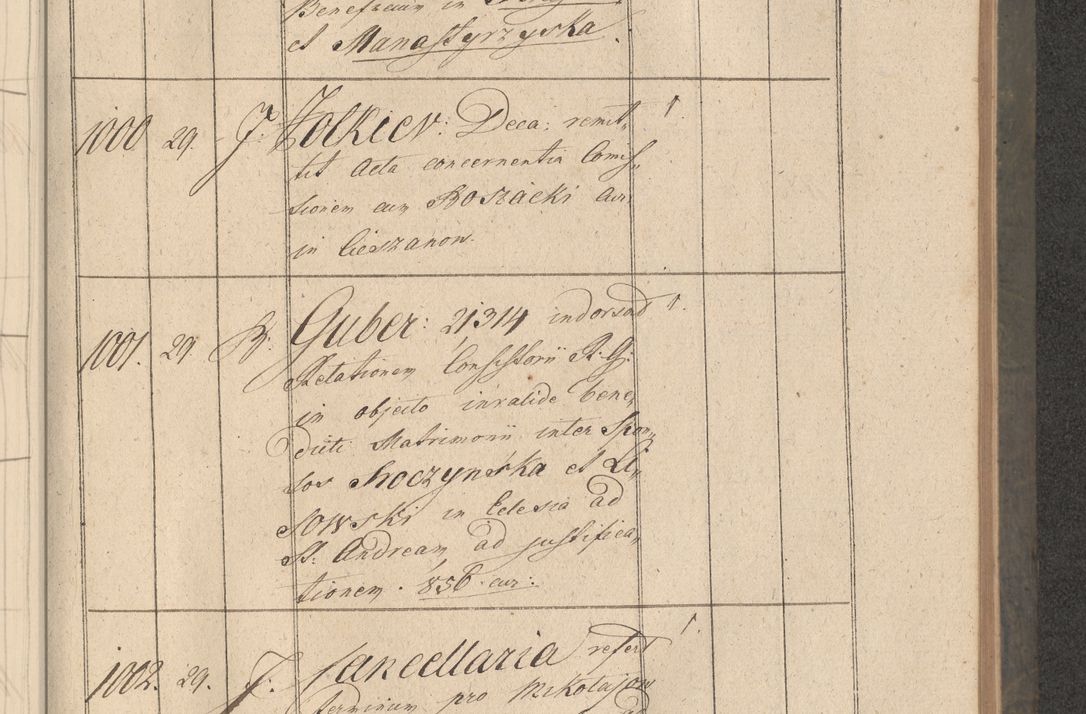 Beneficium in
et Manastyrzyska.
1000 29. J. Zolkiev: Deca: remit„ 1.
tit Acta concernentia Comis„
sionem cum Roszacki Cur:
in Cieszanow.
1001. 29. B. Guber: 21314 indorsad 1.
Relationem Consistorii R. G:
in objecto invalide bene„
dicti Matrimonii inter Spon„
sos Soczynska et Li„
sowski in Eclesia ad
St. Andream, ad justifica„
tionem. 856. cur:
1002. 29. J: Cancellaria refert 1.
Terminum pro Mikolajow
ad